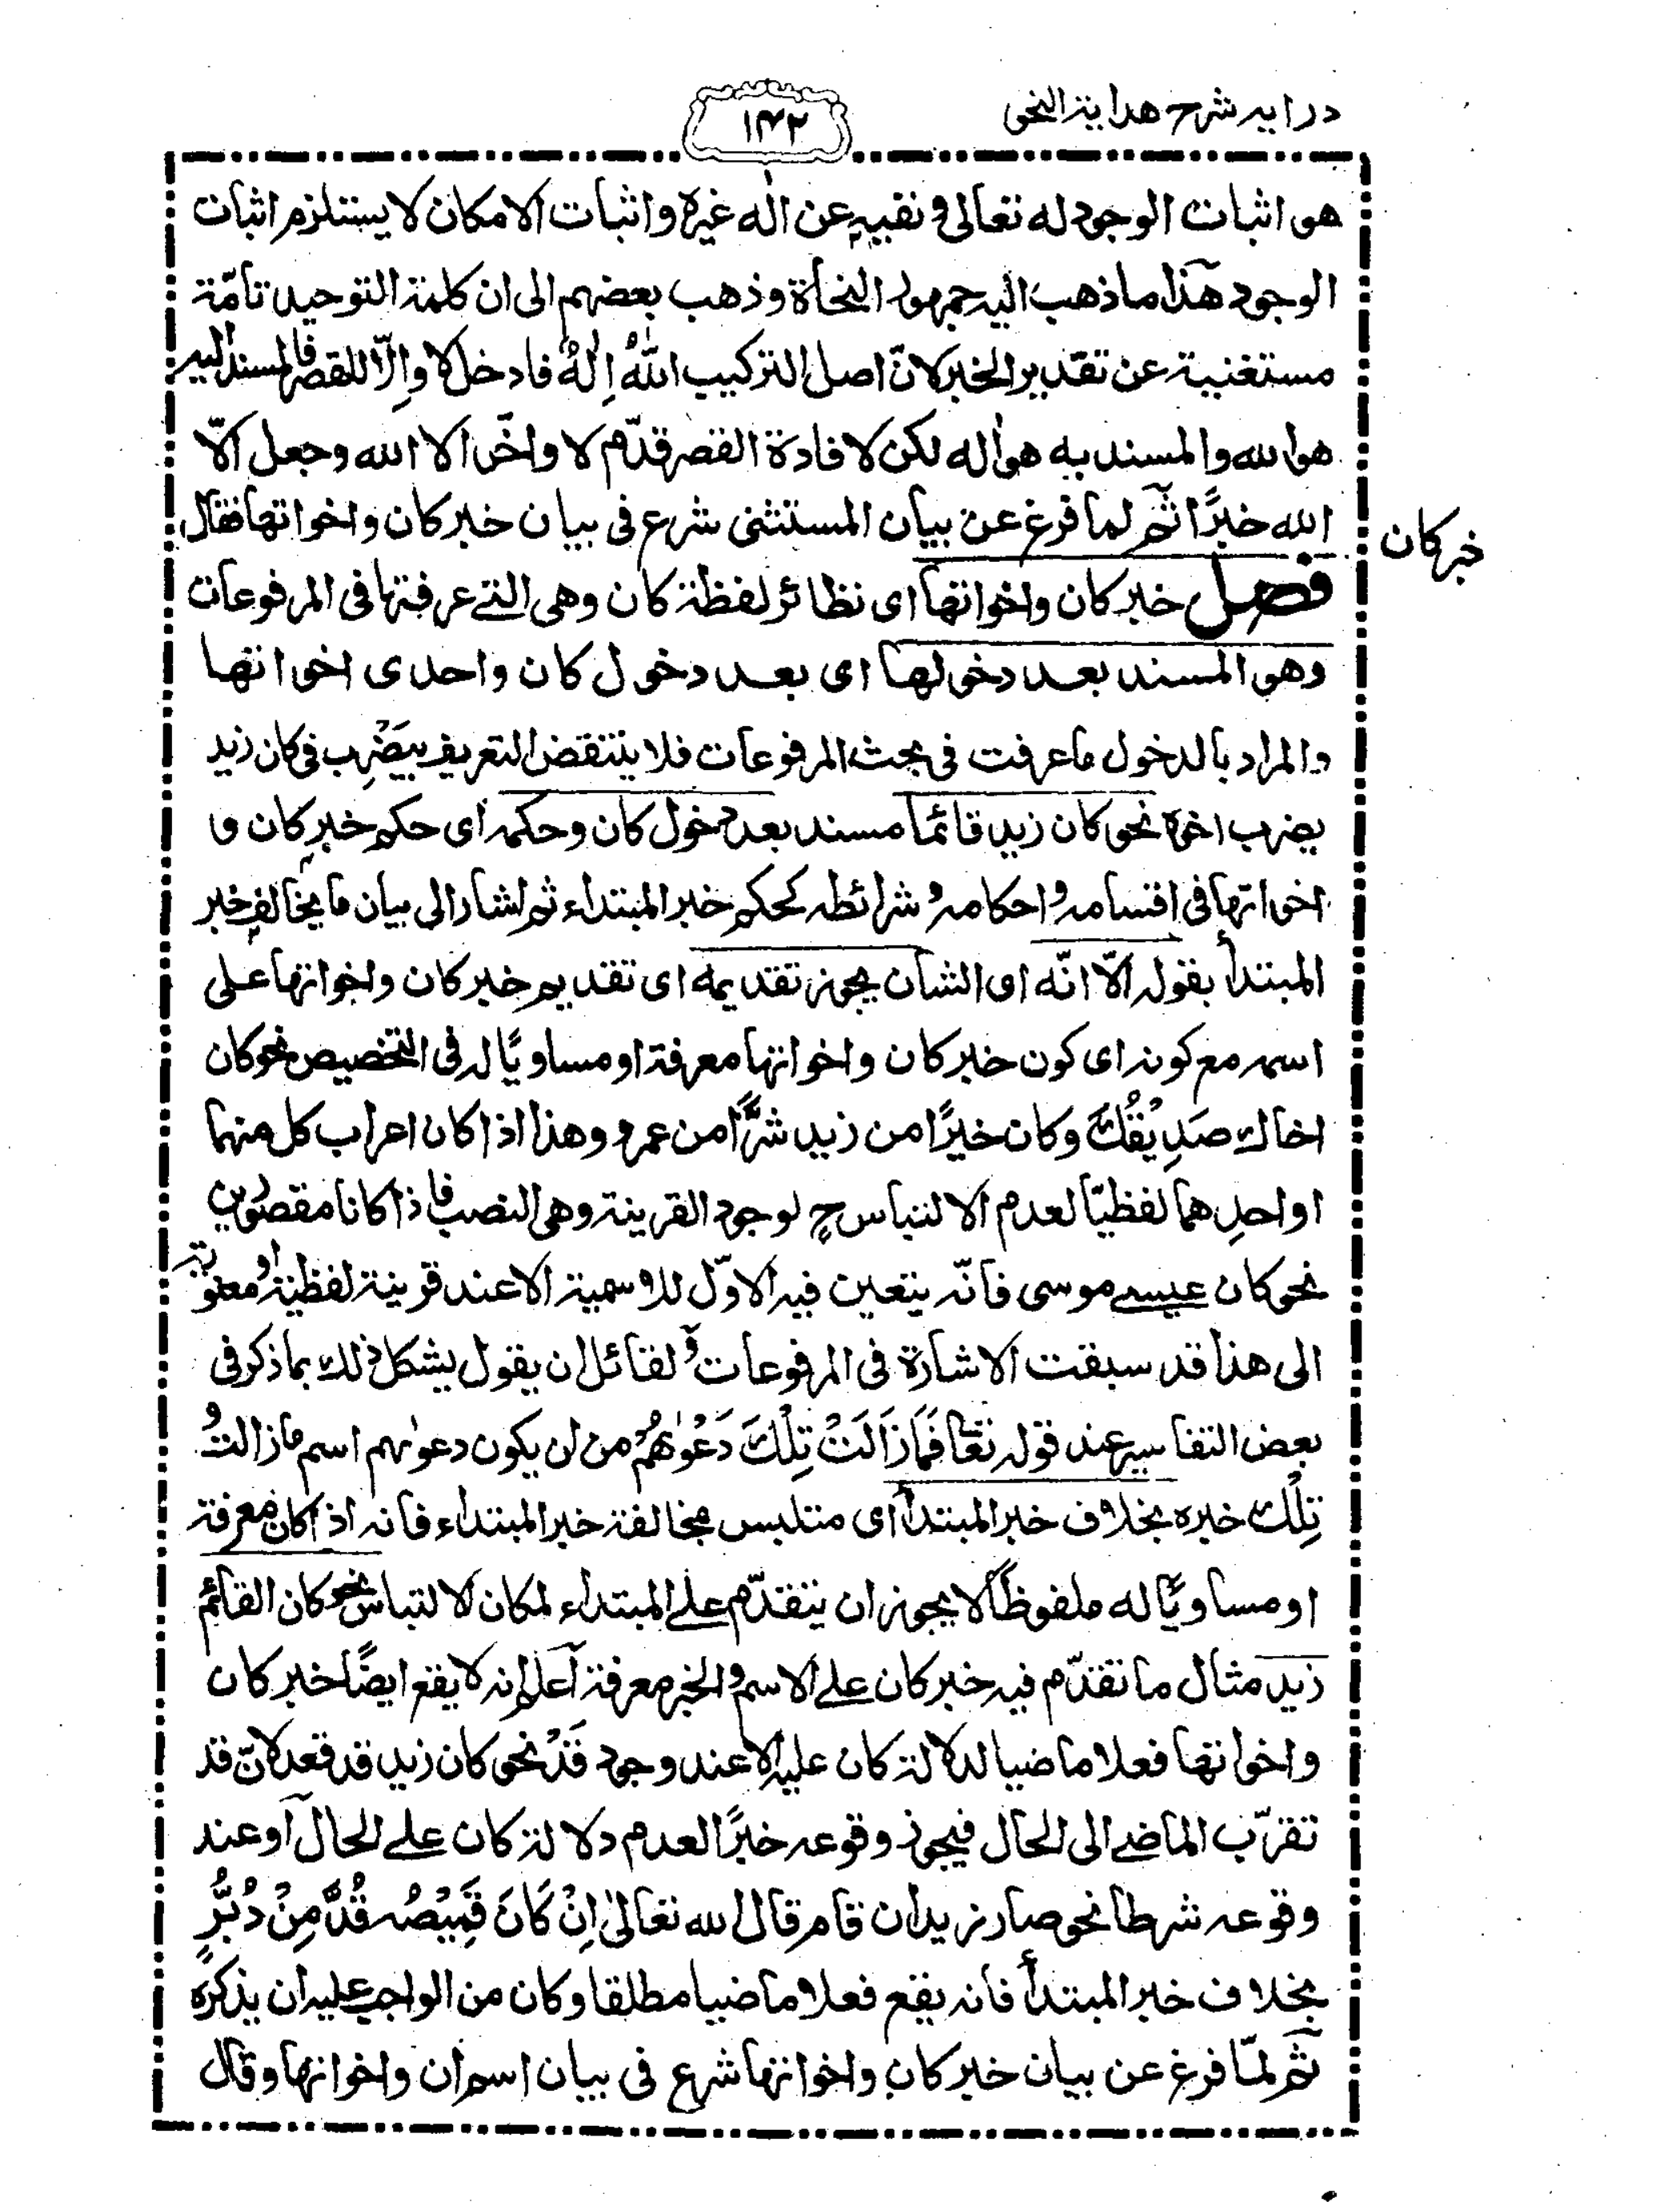 درايه شرح هداية النحو
١٤٢
هو اثبات الوجود له تعالى و نفيه عن اله غيره و اثبات الامكان لا يستلزم اثبات
الوجود هذا ما ذهب اليه جمهور النحاة و ذهب بعضهم الى ان كلمة التوحيد تامّة
مستغنية عن تقدير الخبر لانّ اصل التركيب اللهُ اِلٰهٌ فادخل لا و اِلّا للقصر فالمسند اليه
هو الله والمسند به هو اله لكن لافادة القصر قدّم لا و اخّر الا الله و جعل الّا
الله خبرًا ثم لما فرغ عن بيان المستثنى شرع فى بيان خبر كان و اخواتها فقال
خبر كان
فصل خبر كان و اخواتها اى نظائر لفظة كان وهى التے عرفتها فى المرفوعات
وهو المسند بعد دخولها اى بعد دخول كان و احدى اخواتها
والمراد بالدخول ما عرفت فى بحث المرفوعات فلا ينتقض التعريف بيَضْرِب فى كان زيد
يضرب اخوه نحو كان زيد قائما مسند بعد دخول كان و حكمه اى حكم خبر كان و
اخواتها فى اقسامه و احكامه و شرائطه كحكم خبر المبتداء ثم اشار الى بيان ما يخالف خبر
المبتدأ بقوله الّا انّه اى الشان يجوز تقديمه اى تقديم خبر كان و اخواتها على
اسمه مع كونه اى كون خبر كان و اخواتها معرفة او مساويًا له فى التخصيص نحو كان
اخاك صَدِيْقُكَ و كان خيرًا من زيد شرًّا من عمرو و هذا اذا كان اعراب كل منهما
او احدِهما لفظيّا لعدم الالتباس ح لوجود القرينة وهى النصب فاذا كانا مقصورين
نحو كان عيسے موسى فانّه يتعين فيه الاوّل للاسمية الا عند قرينة لفظية او معنوية
الى هذا قد سبقت الاشارة فى المرفوعات و لقائل ان يقول يشكل ذلك بما ذكر فى
بعض التفاسير عند قوله تعا فَمَا زَالَتْ تِلْكَ دَعْوٰهُمْ من ان يكون دعوٰهم اسم ما زالتْ و
تِلْكَ خبره بخلاف خبر المبتدأ اى متلبس بمخالفة خبر المبتداء فانه اذا كان معرفة
او مساويًا له ملفوظًا لا يجوز ان يتقدّم علے المبتداء لمكان الالتباس نحو كان القائم
زيد مثال ما تقدّم فيه خبر كان علے الاسم و الخبر معرفة اعلم انه لا يقع ايضًا خبر كان
و اخواتها فعلا ماضيا لدلالة كان عليه الا عند وجود قَدْ نحو كان زيد قد قعد لانّ قد
تقرّب الماضے الى الحال فيجوز وقوعه خبرًا لعدم دلالة كان علے الحال او عند
وقوعه شرطا نحو صار زيد ان قام قال الله تعالىٰ اِنْ كَانَ قَمِيْصُه قُدَّ مِنْ دُبُرٍ
بخلاف خبر المبتدأ فانه يقع فعلا ماضيا مطلقا و كان من الواجب عليه ان يذكره
ثم لمّا فرغ عن بيان خبر كان و اخواتها شرع فى بيان اسم ان و اخواتها و قال